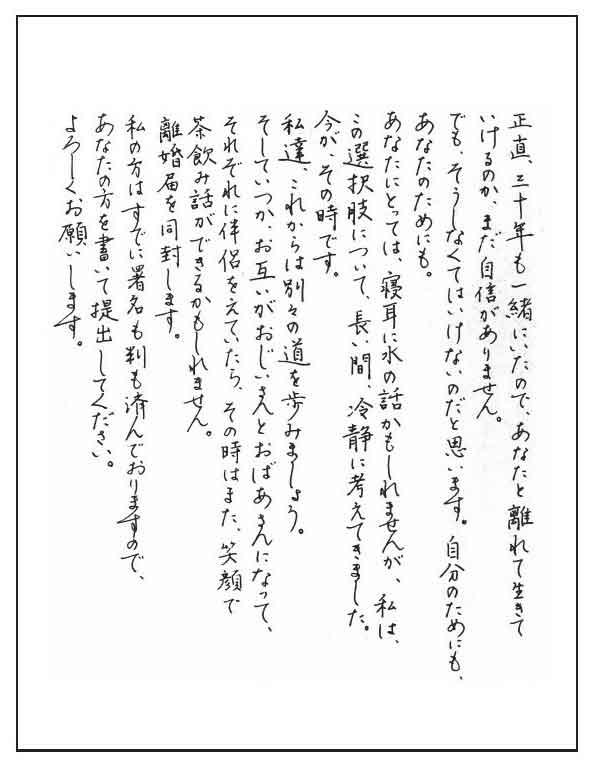 正直、三十年も一緒にいたので、あなたと離れて生きて
いけるのか、まだ自信がありません。
でも、そうしなくてはいけないのだと思います。自分のためにも、
あなたのためにも。
あなたにとっては、寝耳に水の話かもしれませんが、私は、
この選択肢について、長い間、冷静に考えてきました。
今が、その時です。
私達、これからは別々の道を歩みましょう。
そしていつか、お互いがおじいさんとおばあさんになって、
それぞれに伴侶をえていたら、その時はまた、笑顔で
茶飲み話ができるかもしれません。
離婚届を同封します。
私の方はすでに署名も判も済んでおりますので、
あなたの方を書いて提出してください。
よろしくお願いします。